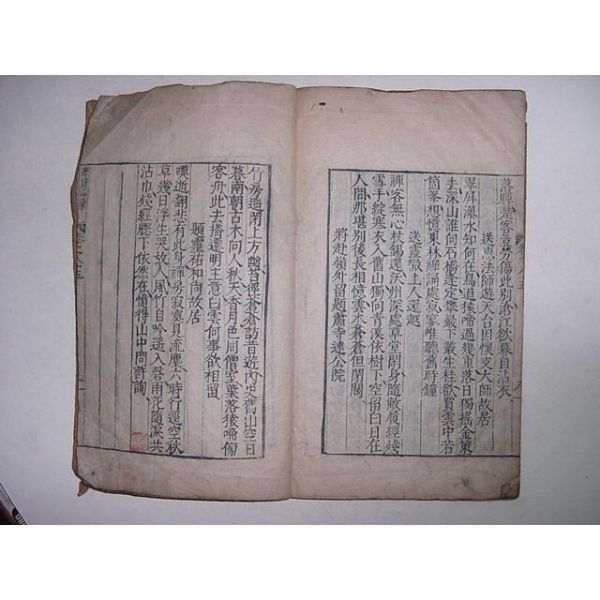 此別滄江欲暮自沾衣
送惠法師遊天台因懷智大師故居
翠屏瀑水知何在鳥道猿啼過幾重落日獨搖金策
去深山誰向石橋逢定攀巖下叢生桂欲買雲中若
箇峯想憶東林禪誦處寂寥唯聽舊時鐘
送靈徹上人還越
禪客無心杖錫還沃洲深處草堂閒身隨敝屨經殘
雪手綻寒衣入舊山獨向青溪依樹下空留白日在
人間那堪別後長相憶雲木蒼蒼但閉關
將赴嶺外留題蕭寺遠公院
竹房遙閉上方幽苔徑蒼蒼訪昔遊內史舊山空日
暮南朝古木向人秋天香月色同僧室葉落猿啼傍
客舟此去播遷明主意白雲何事欲相留
題靈祐和尚故居
嘆逝翻悲有此身禪房寂寞見流塵時行徑空秋
草幾日浮生哭故人風竹自吟遙入磬雨花隨淚共
沾巾殘經窗下依然在憶得山中問許詢